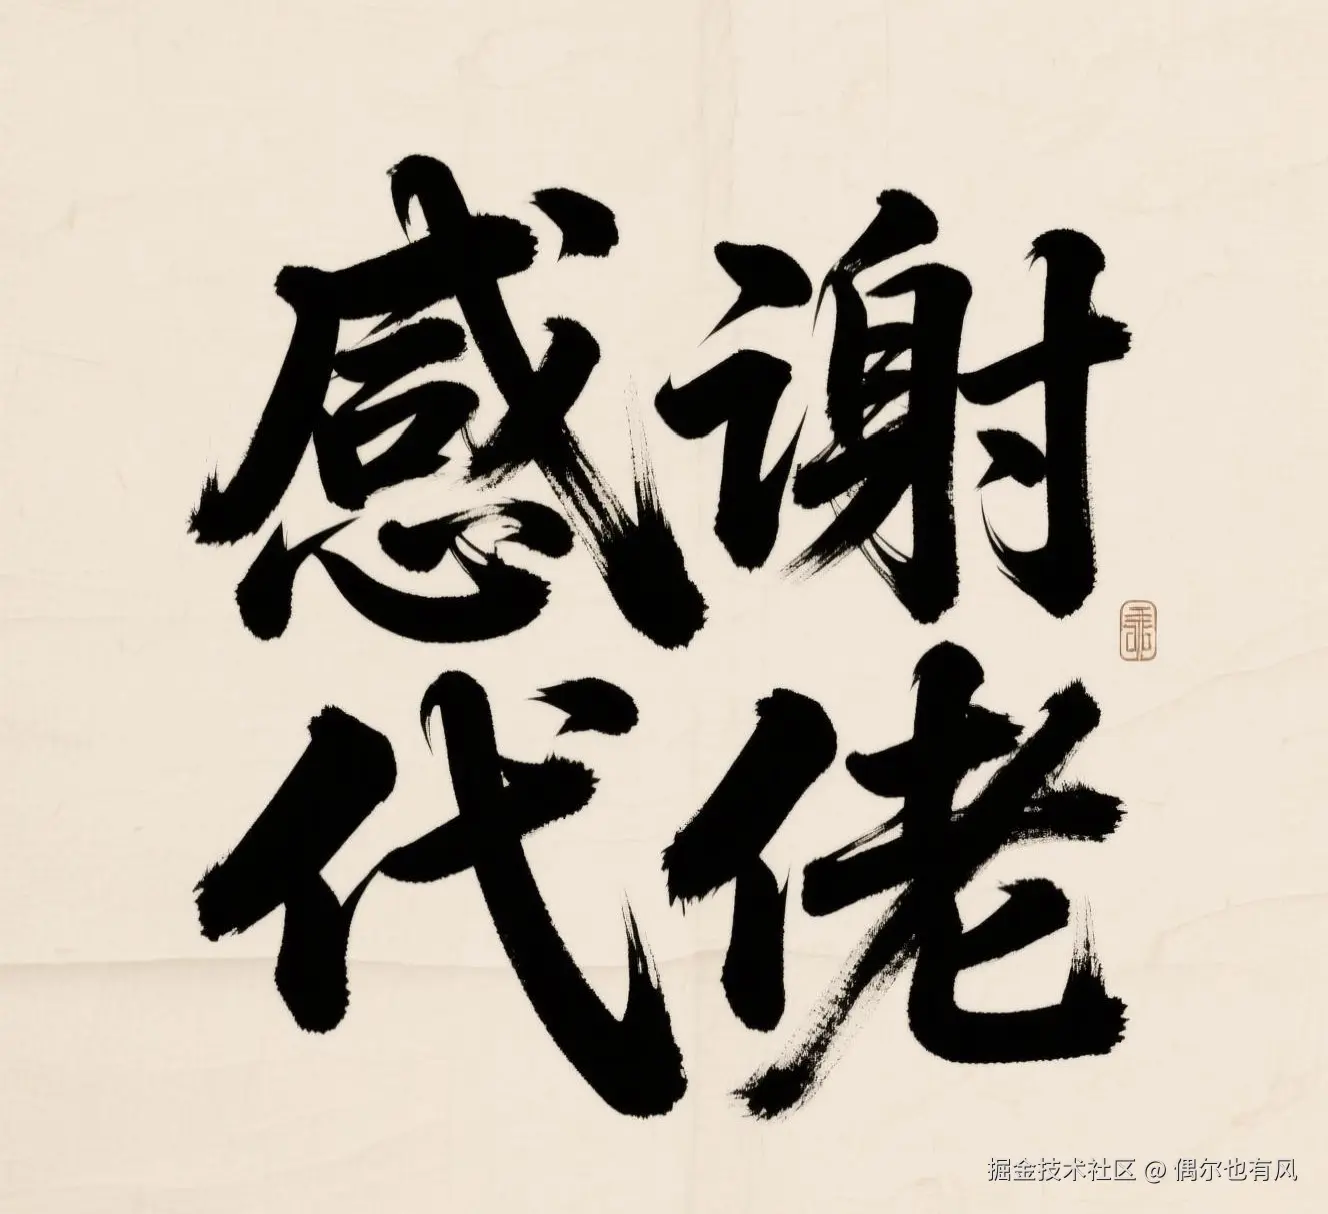 感谢
代佬
掘金技术社区 @ 偶尔也有风